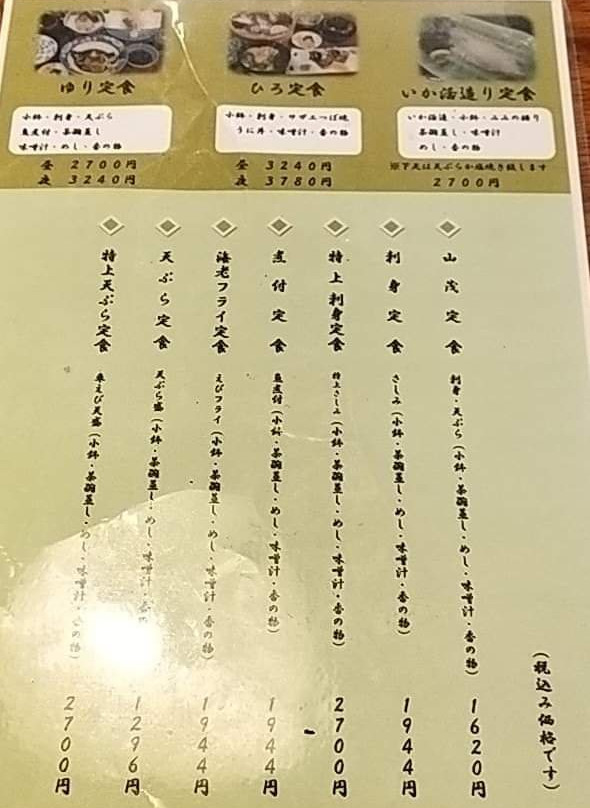 ゆり定食
小鉢・刺身・天ぷら
魚煮付・茶碗蒸し
味噌汁・めし・香の物
昼 2700円
夜 3240円
ひろ定食
小鉢・刺身・サザエつぼ焼
うに丼・味噌汁・香の物
昼 3240円
夜 3780円
いか活造り定食
いか活造・小鉢・みみの握り
茶碗蒸し・味噌汁
めし・香の物
※下足は天ぷらか塩焼き致します
2700円
(税込み価格です)
山茂定食 刺身・天ぷら(小鉢・茶碗蒸し・めし・味噌汁・香の物) 1620円
刺身定食 さしみ(小鉢・茶碗蒸し・めし・味噌汁・香の物) 1944円
特上刺身定食 特上さしみ(小鉢・茶碗蒸し・めし・味噌汁・香の物) 2700円
煮付定食 魚煮付(小鉢・茶碗蒸し・めし・味噌汁・香の物) 1944円
海老フライ定食 えびフライ(小鉢・茶碗蒸し・めし・味噌汁・香の物) 1944円
天ぷら定食 天ぷら盛(小鉢・茶碗蒸し・めし・味噌汁・香の 1296円
特上天ぷら定食 車えび天盛(小鉢・茶碗蒸し・めし・味噌汁・香の物) 2700円